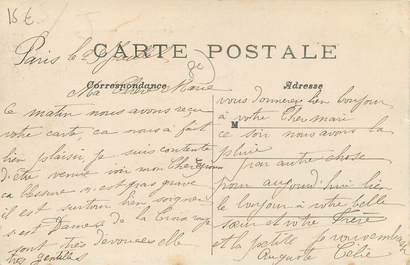 15 €
CARTE POSTALE
Paris le
Correspondance
Adresse
Ma Chère Marie
ce matin nous avons reçu
votre carte, ca nous a fait
bien plaisir, je suis contente
d'être venue voir mon Cher
ca blessure n'est pas grave
il est surtout bien soigner
s'est Dames de la Croix rouge
sont très dévouées elle
très gentilles
vous donnerez bien bonjour
à votre Cher mari
M
ce soir nous avons la
pluie
pas autre chose
pour aujourd'hui bien
le bonjour à votre belle
sœur et votre Frère
et la petite
Auguste Célie